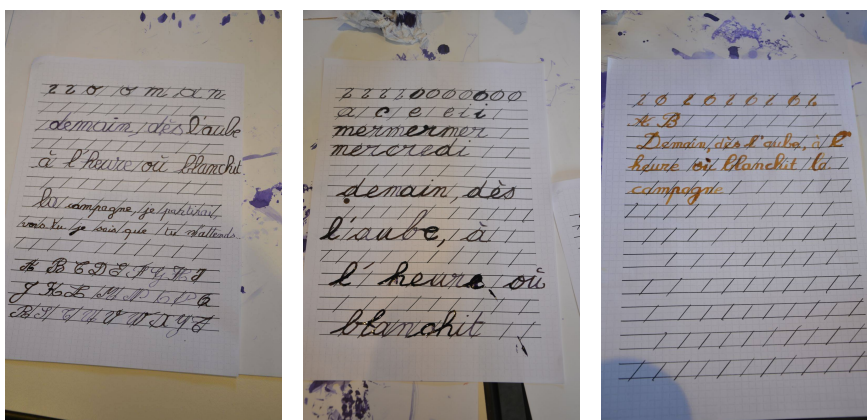 demain, dès l'aube
à l'heure où blanchit
la campagne, je partirai,
vois tu je sais que tu m'attends
A B C D E F G H I
J K L M N O P Q
R S T U V W X Y Z
a c e e i i
mermermer
mercredi
demain, dès
l'aube, à
l'heure, où
blanchit
A B
Demain, dès l'aube, à l'
heure où blanchit la
campagne